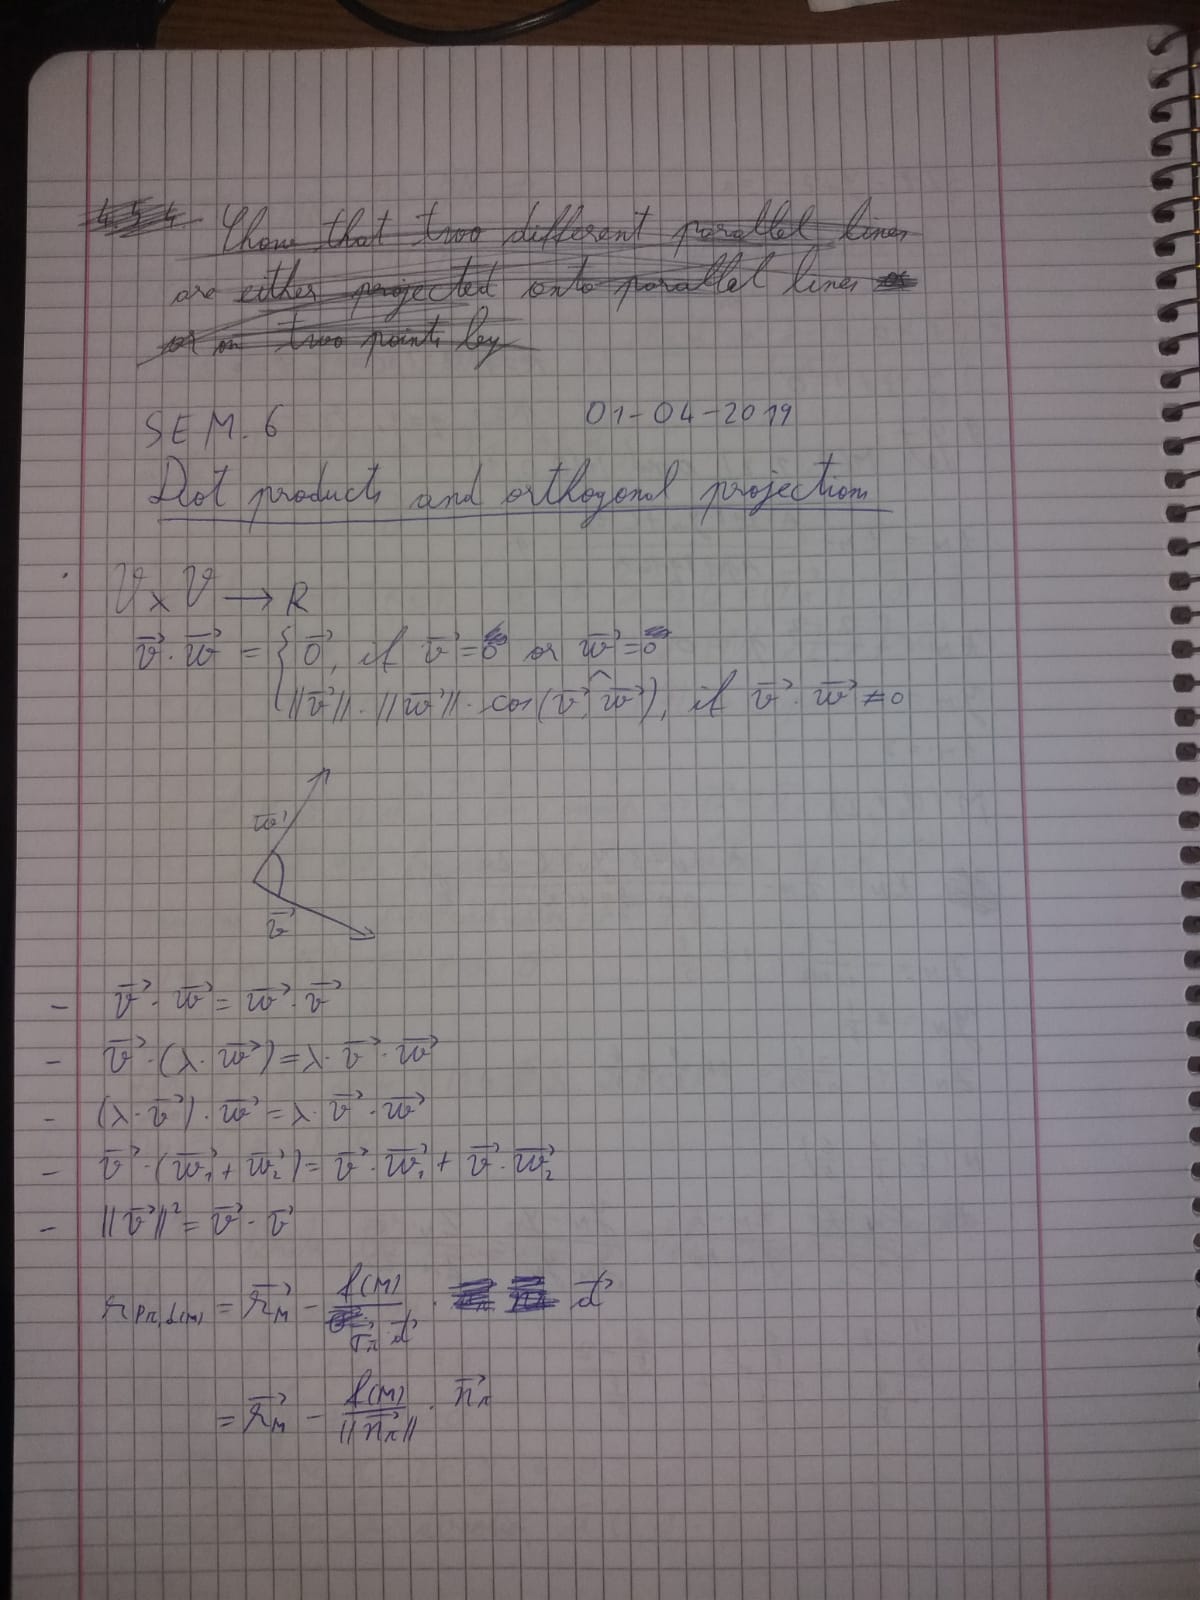 Show that two different parallel lines
are either projected onto parallel lines
or on two points by
SEM. 6 01-04-2019
Dot products and orthogonal projections
V × V → R
v⃗ · w⃗ = { 0⃗, if v⃗ = 0 or w⃗ = 0
||v⃗|| · ||w⃗|| · cos(v⃗, w⃗), if v⃗ · w⃗ ≠ 0
w⃗
v⃗
- v⃗ · w⃗ = w⃗ · v⃗
- v⃗ · (λ · w⃗) = λ · v⃗ · w⃗
- (λ · v⃗) · w⃗ = λ · v⃗ · w⃗
- v⃗ · (w⃗₁ + w⃗₂) = v⃗ · w⃗₁ + v⃗ · w⃗₂
- ||v⃗||² = v⃗ · v⃗
r_{Pπ,d(M)} = r⃗_M - f(M) / · d⃗
= r⃗_M - f(M) / ||n⃗_π|| · n⃗_π